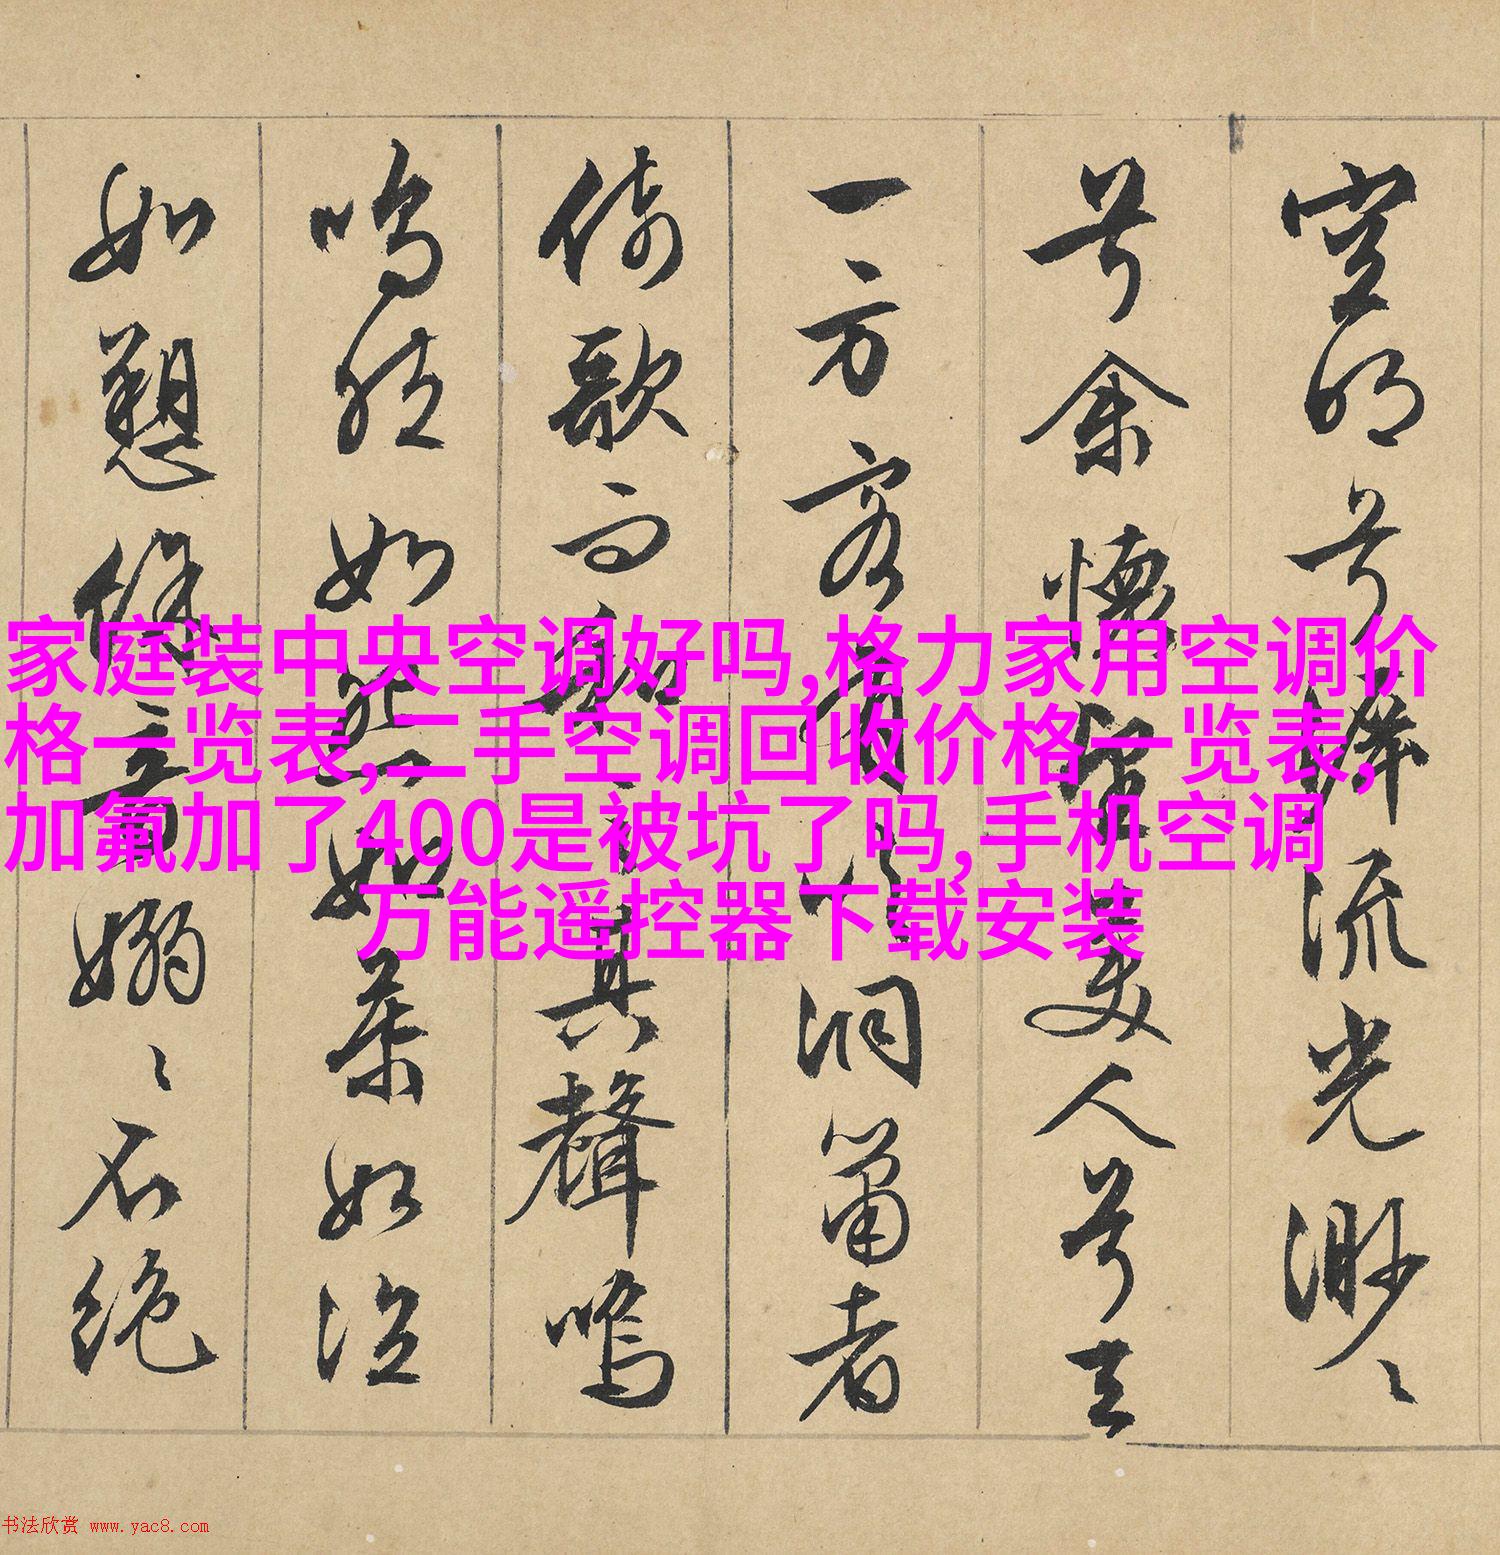 空明兮流光渺〻
兮余懷望美人兮天
一方客有吹洞簫者
倚歌而和之其聲嗚
嗚然如怨如慕如泣
如愬餘音嫋〻不絕
家庭装中央空调好吗,格力家用空调价
格一览表,二手空调回收价格一览表,
加氟加了400是被坑了吗,手机空调
万能遥控器下载安装
书法欣赏 www.yac8.com